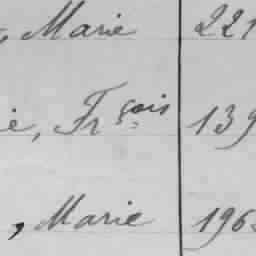 , Marie 221
ie, Frçois 139
, Marie 196